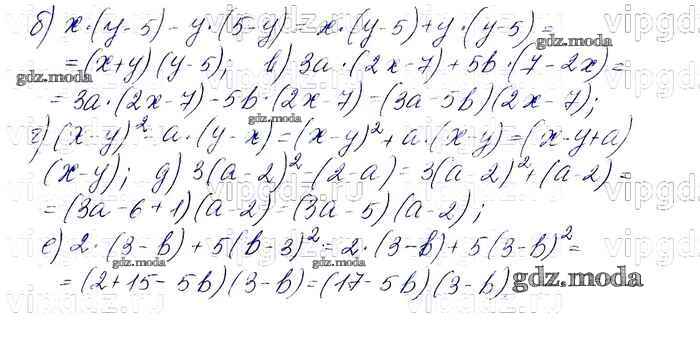 б) x·(y-5) - y·(5-y) = x·(y-5)+y·(y-5) =
= (x+y)(y-5); в) 3a·(2x-7) + 5b·(7-2x) =
= 3a·(2x-7) - 5b·(2x-7) = (3a-5b)(2x-7);
г) (x-y)² - a·(y-x) = (x-y)² + a·(x-y) = (x-y+a)
(x-y); д) 3(a-2)² - (2-a) = 3(a-2)² + (a-2) =
= (3a-6+1)(a-2) = (3a-5)(a-2);
е) 2·(3-b) + 5(b-3)² = 2·(3-b) + 5(3-b)² =
= (2+15-5b)(3-b) = (17-5b)(3-b)
gdz.moda
gdz.moda
gdz.moda
gdz.moda
gdz.moda
gdz.moda
vipgdz.ru